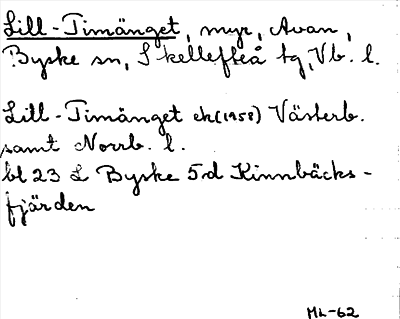 Lill-Timänget, myr, Avan,
Byske sn, Skellefteå tg, Vb. l.
Lill-Timänget ek(1958) Västerb.
samt Norrb. l.
bl 23 L Byske 5d Kinnbäcks-
fjärden
ML-62